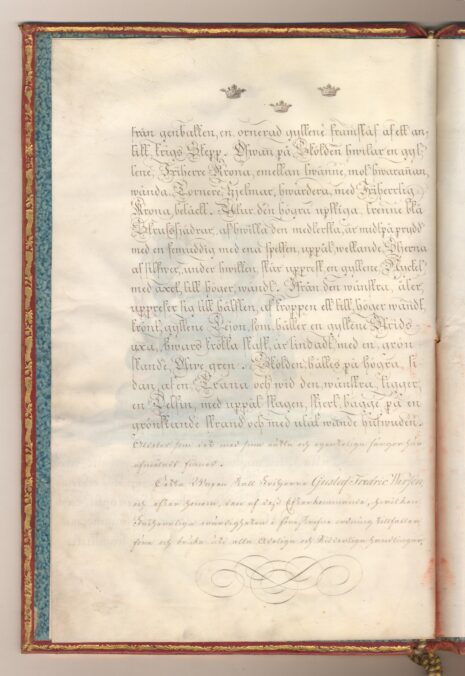 från genbalken, en ornerad gyllene framstaf af ett an,
till krigs Skepp. Ofwan på Skölden hwilar en gyl,
lene, Friherre Krona, emellan twänne, mot hwarannan,
wända, Tornere, Hjelmar, hwardera, med Friherrelig,
Krona, betäckt. Utur den högra upstiga, trenne blå
Strutsfjädrar, af hwilka den medlersta, är midt på prydd
med en femuddig med ena spetsen, uppåt, wettande Stjerna
af silfwer, under hwilken, står uppreft, en gyllene, Nyckel
med axet, till höger, wändt. Ifrån den wänstra, åter,
uppreser sig till hälften, af kroppen ett till höger wändt
krönt, gyllene Lejon, som håller en gyllene Strids
yxa, hwars skaft, är lindadt med en, grön
skande, gren. Skölden, hållis på högra, si
dan, af en, Trana och wid den, wänstra, ligger,
en Delfin, med uppåt slagen, stjert, bägge, på en
grönskande strand och med utåt wände hufwuden.
som det med sina rätta och egenteliga färgor här
afmåladt finnes.
Detta Wapen skall Friherre Gustaf Fredric
och efter honom, den af dess Efterkommande, hwilken
Friherrliga wärdigheten i föreskrifne ordning tillfaller
föra och bruka wid alla Adelige och Ridderliga handlingar,